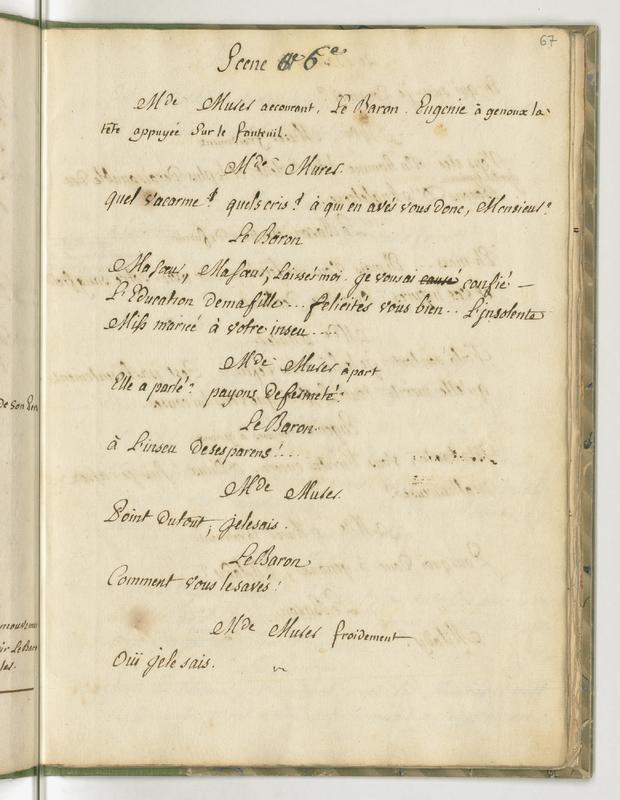 67
Scene 6e
Mde Murer accourant, Le Baron. Eugenie à genoux la
tête appuyée sur le fauteuil.
Mde Murer
quel vacarme! quels cris! à qui en avés vous donc, Monsieur?
Le Baron
Ma sœur, Ma sœur, laissés moi. je vous ai causé confié —
L'Education de ma fille... felicités vous bien.. L'insolente
Miss mariée à votre inseu....
Mde Murer à part
Elle a parlé? payons de fermeté!
Le Baron
à L'inseu de ses parens!...
Mde Murer
Point du tout, je le sais.
Le Baron
Comment vous le savés!
Mde Murer froidement
Oüi je le sais.